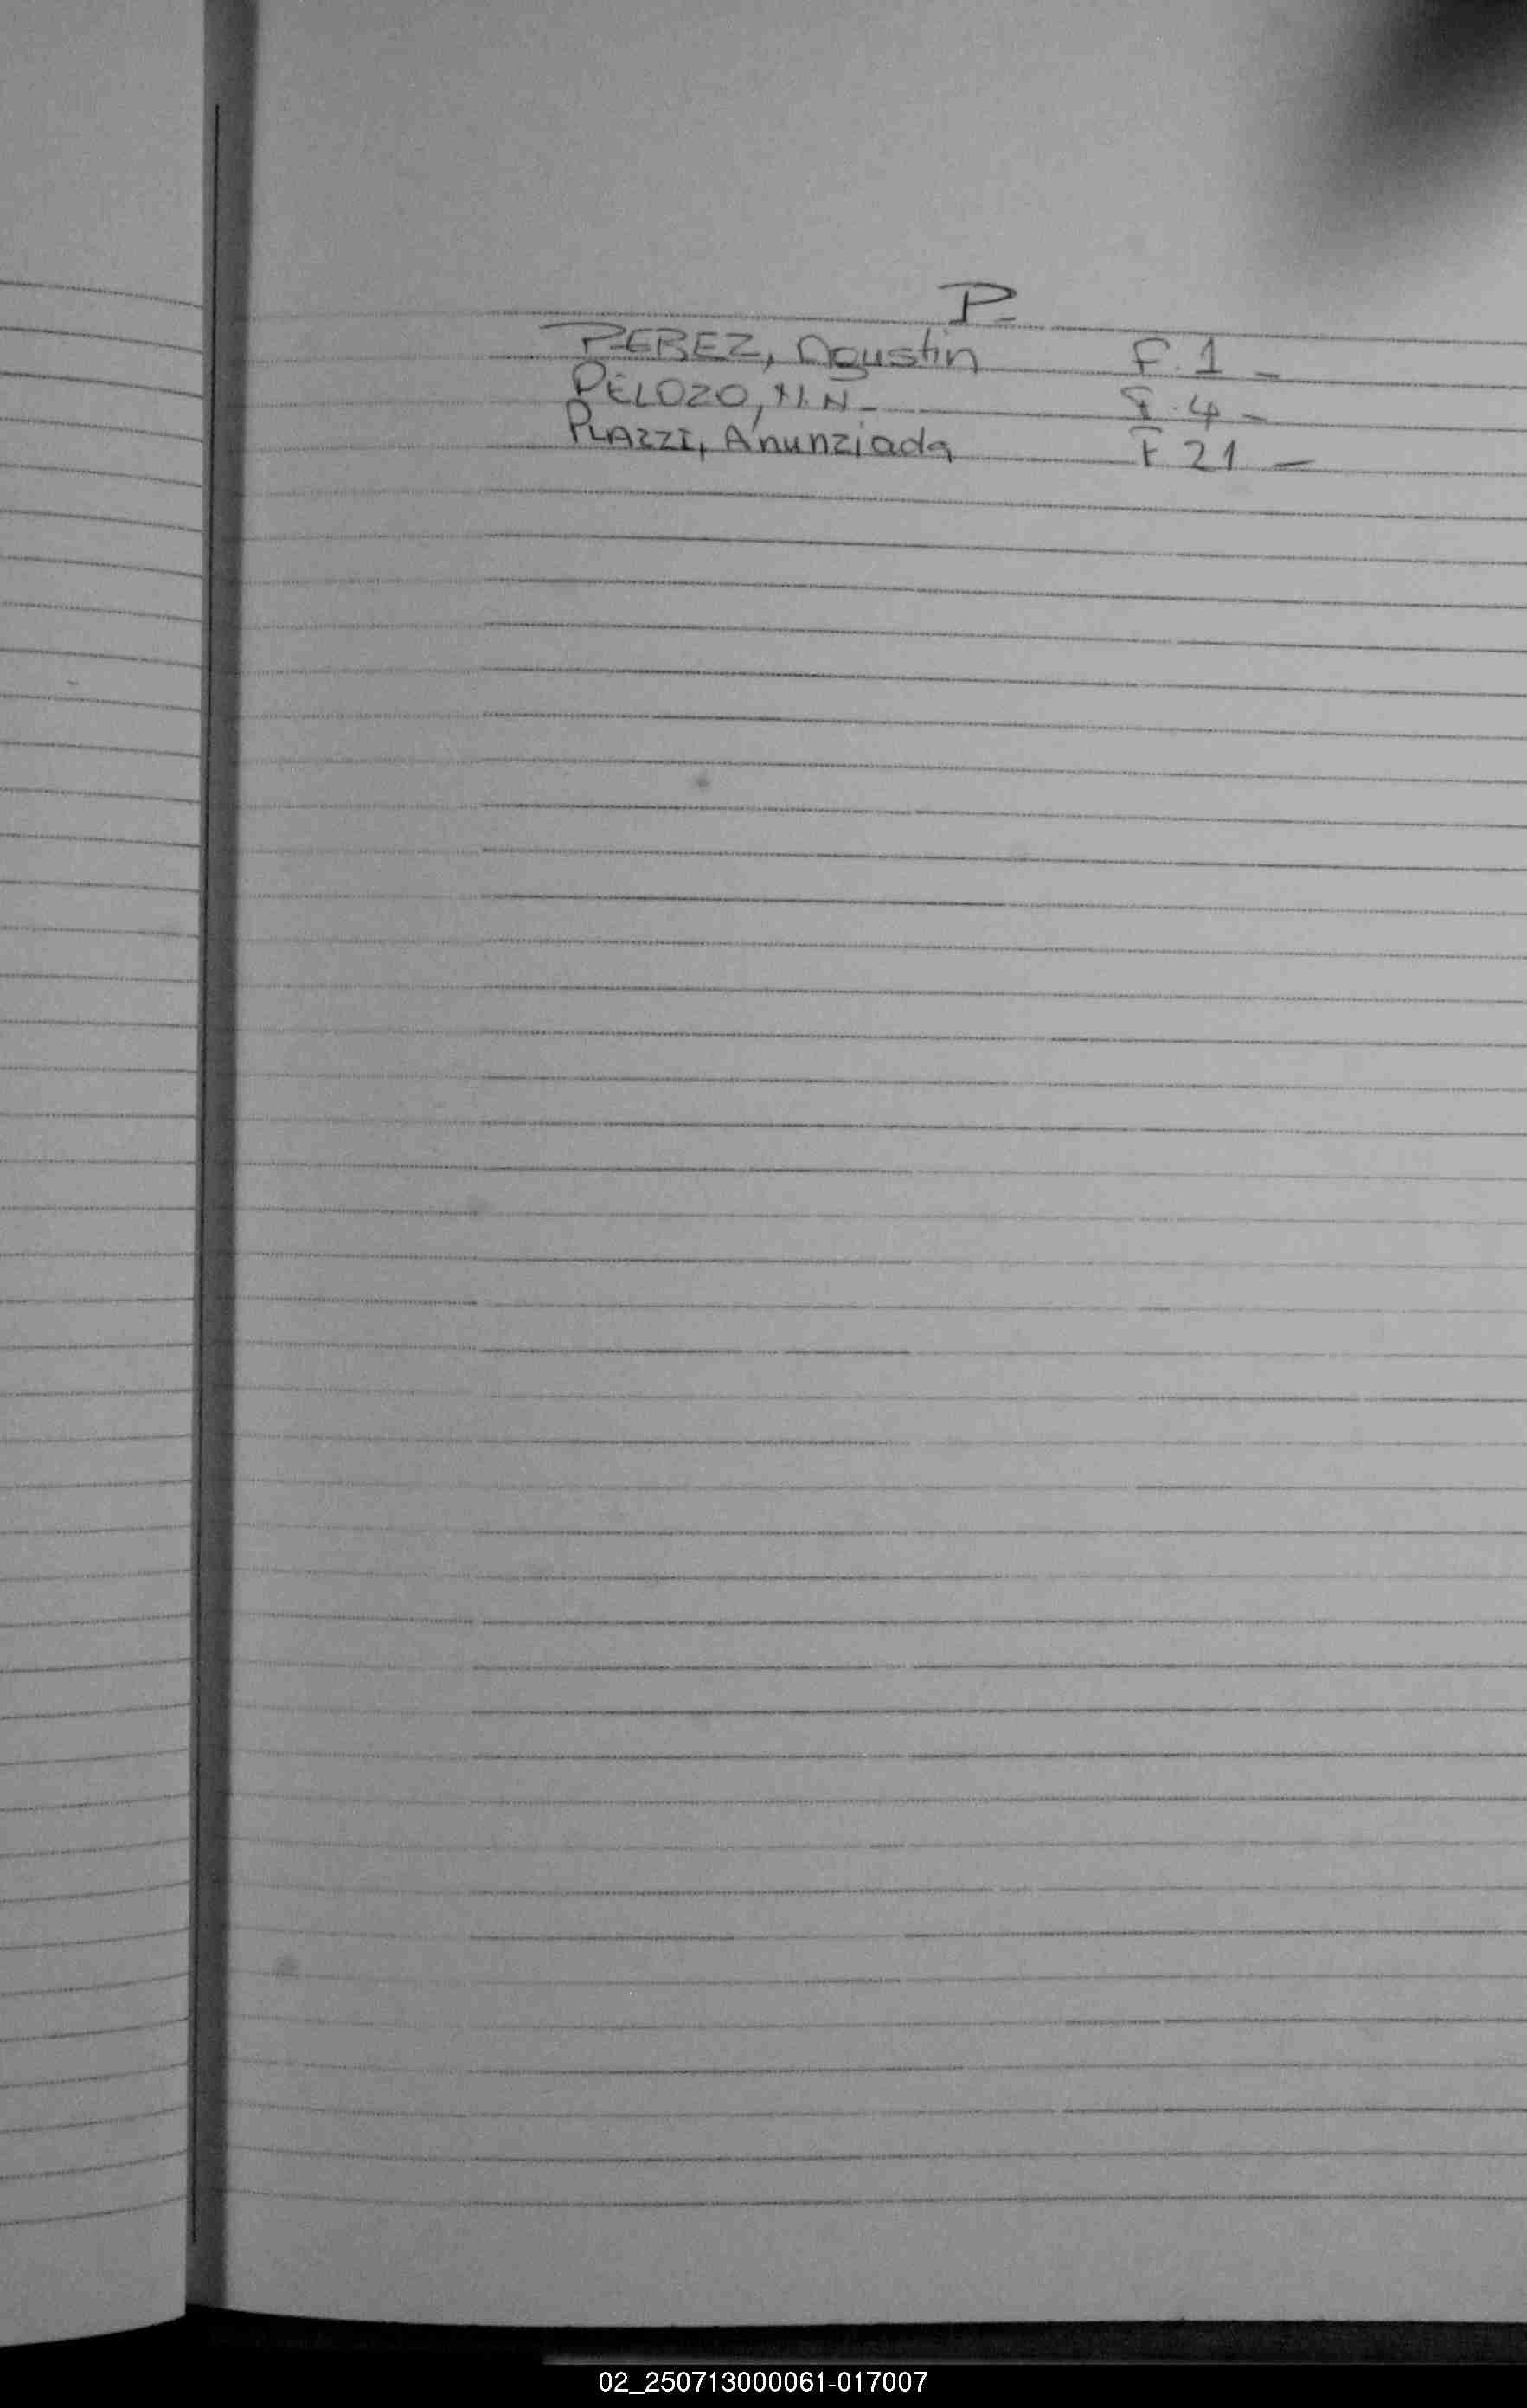 P.
PEREZ, Agustin F. 1 -
PELOZO, N.N - F. 4 -
PLAZZI, Anunziada F 21 -
02_250713000061-017007